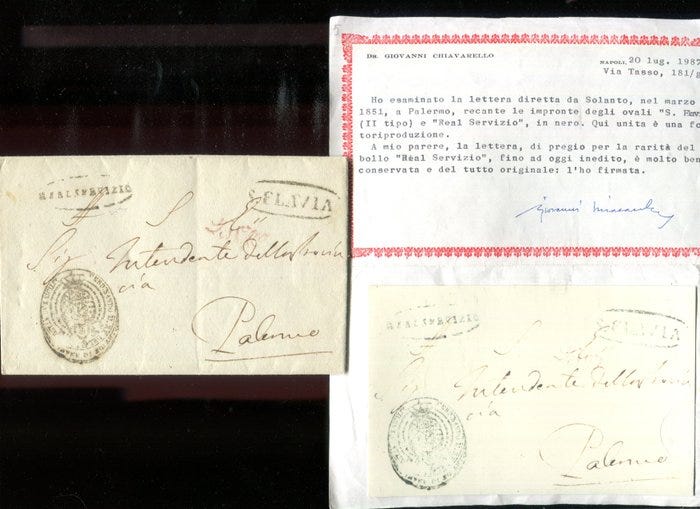 REAL SERVIZIO
S. FLAVIA
Sig Intendente della
cia
Palermo
DR. GIOVANNI CHIAVARELLO
NAPOLI, 20 lug. 1987
Via Tasso, 181/g
Ho esaminato la lettera diretta da Solanto, nel marzo
1851, a Palermo, recante le impronte degli ovali "S.
(II tipo) e "Real Servizio", in nero. Qui unita è una fo
toriproduzione.
A mio parere, la lettera, di pregio per la rarità del
bollo "Real Servizio", fino ad oggi inedito, è molto ben
conservata e del tutto originale: l'ho firmata.
REAL SERVIZIO
FLAVIA
Sig Intendente della
cia
Palermo